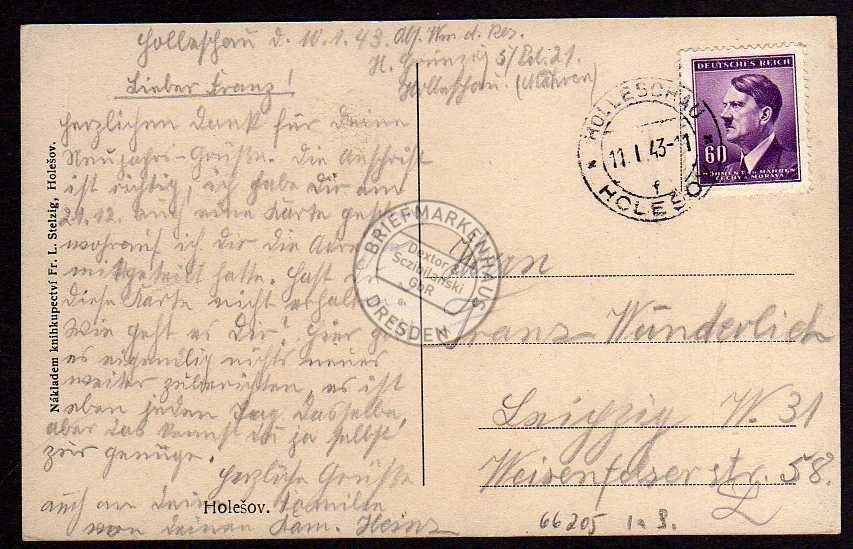 Holleschau d. 10.1.43.
Abs. Wm. d. Res.
H. 5/ 21.
Holleschau (Mähren)
Lieber Franz!
Herzlichen Dank für Deine
Neujahrs-Grüße. Die Anschrift
ist richtig, ich habe Dir am
21.12. eine Karte
worauf ich Dir die
mitgeteilt hatte. Hast
diese Karte nicht erhalten.
Wie geht es Dir? Hier
es nichts neues
weiter zu berichten, es ist
eben jeden Tag dasselbe,
aber das kennst Du ja selbst
zur genüge.
Herzliche Grüße
auch an Deine Familie
von Deinen Kam. Heinz
Nákladem knihkupectví Fr. L. Stelzig, Holešov.
Holešov.
DEUTSCHES REICH
60
BÖHMEN U. MÄHREN
ČECHY A MORAVA
HOLLESCHAU
11.I.43-11
f
HOLEŠOV
BRIEFMARKENHAUS
Dextor &
Sczibilanski
GbR
DRESDEN
Herrn
Franz Wunderlich
Leipzig W. 31
Weisenfelser str. 58.
66205